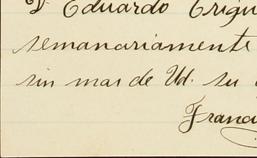 Dn Eduardo Trigu
semanariamente
sin mas de Ud. su
Franci